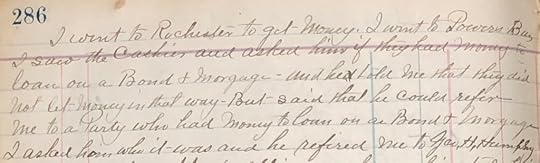 286
I went to Rochester to get Money. I went to Powers Ban
I saw the Cashier and asked him if they had Money to
loan on a Bond & Morgage - and he told Me that they did
Not let Money in that way - But said that he could refer
Me to a Party who had Money to loan on a Bond & Morgage
I asked hom who it was and he refired Me to Humphry